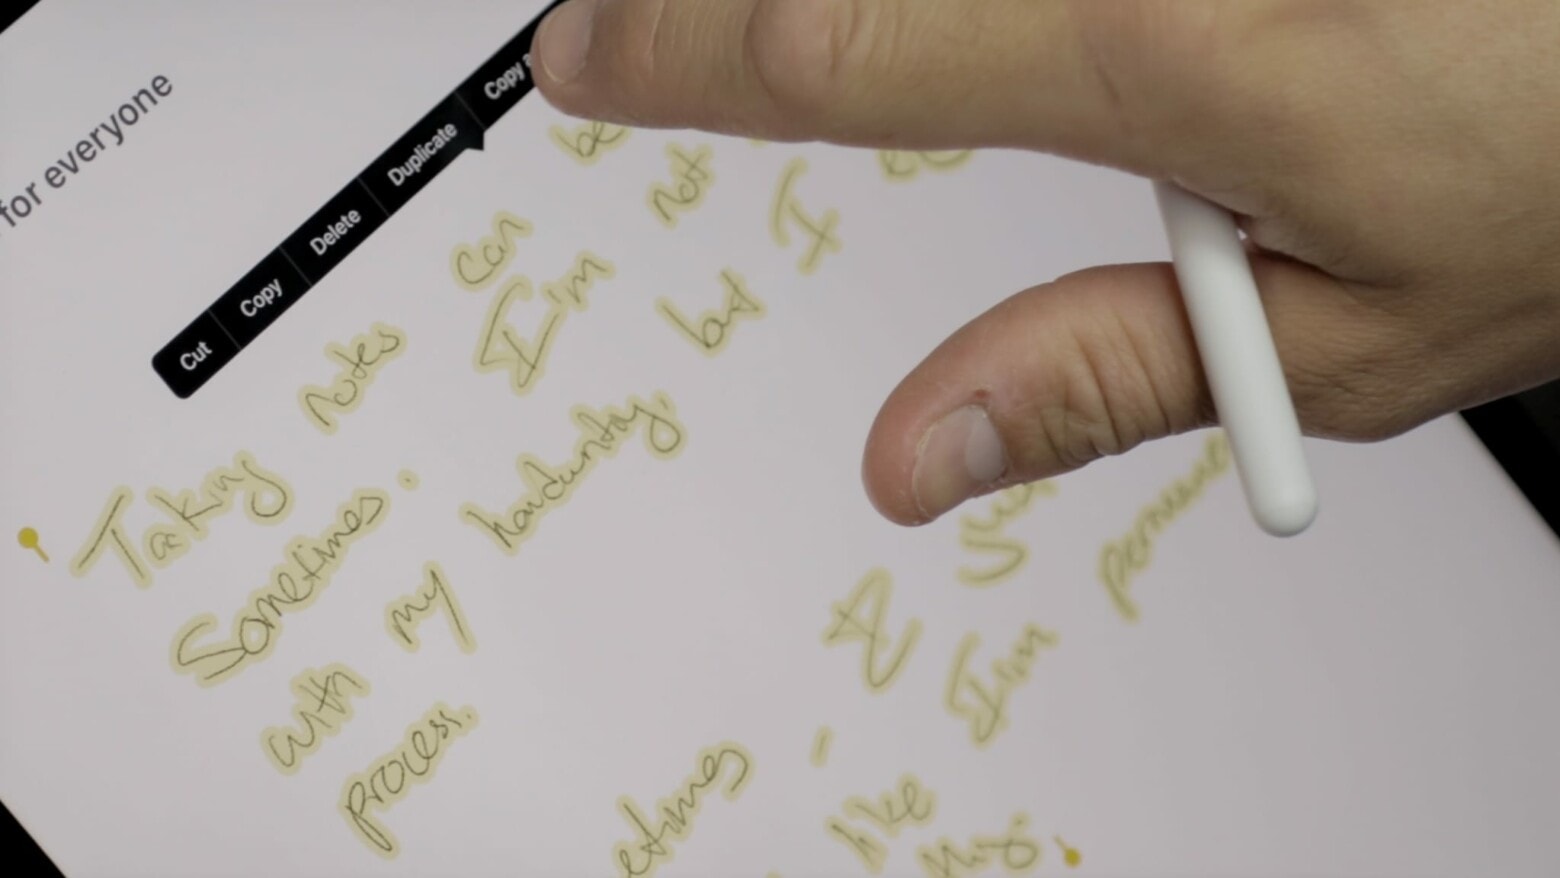 for everyone
Cut Copy Delete Duplicate Copy
Taking notes can be
Sometimes. I'm not
with my handwriting, but I
process.
etimes - I
like I'm
thing.